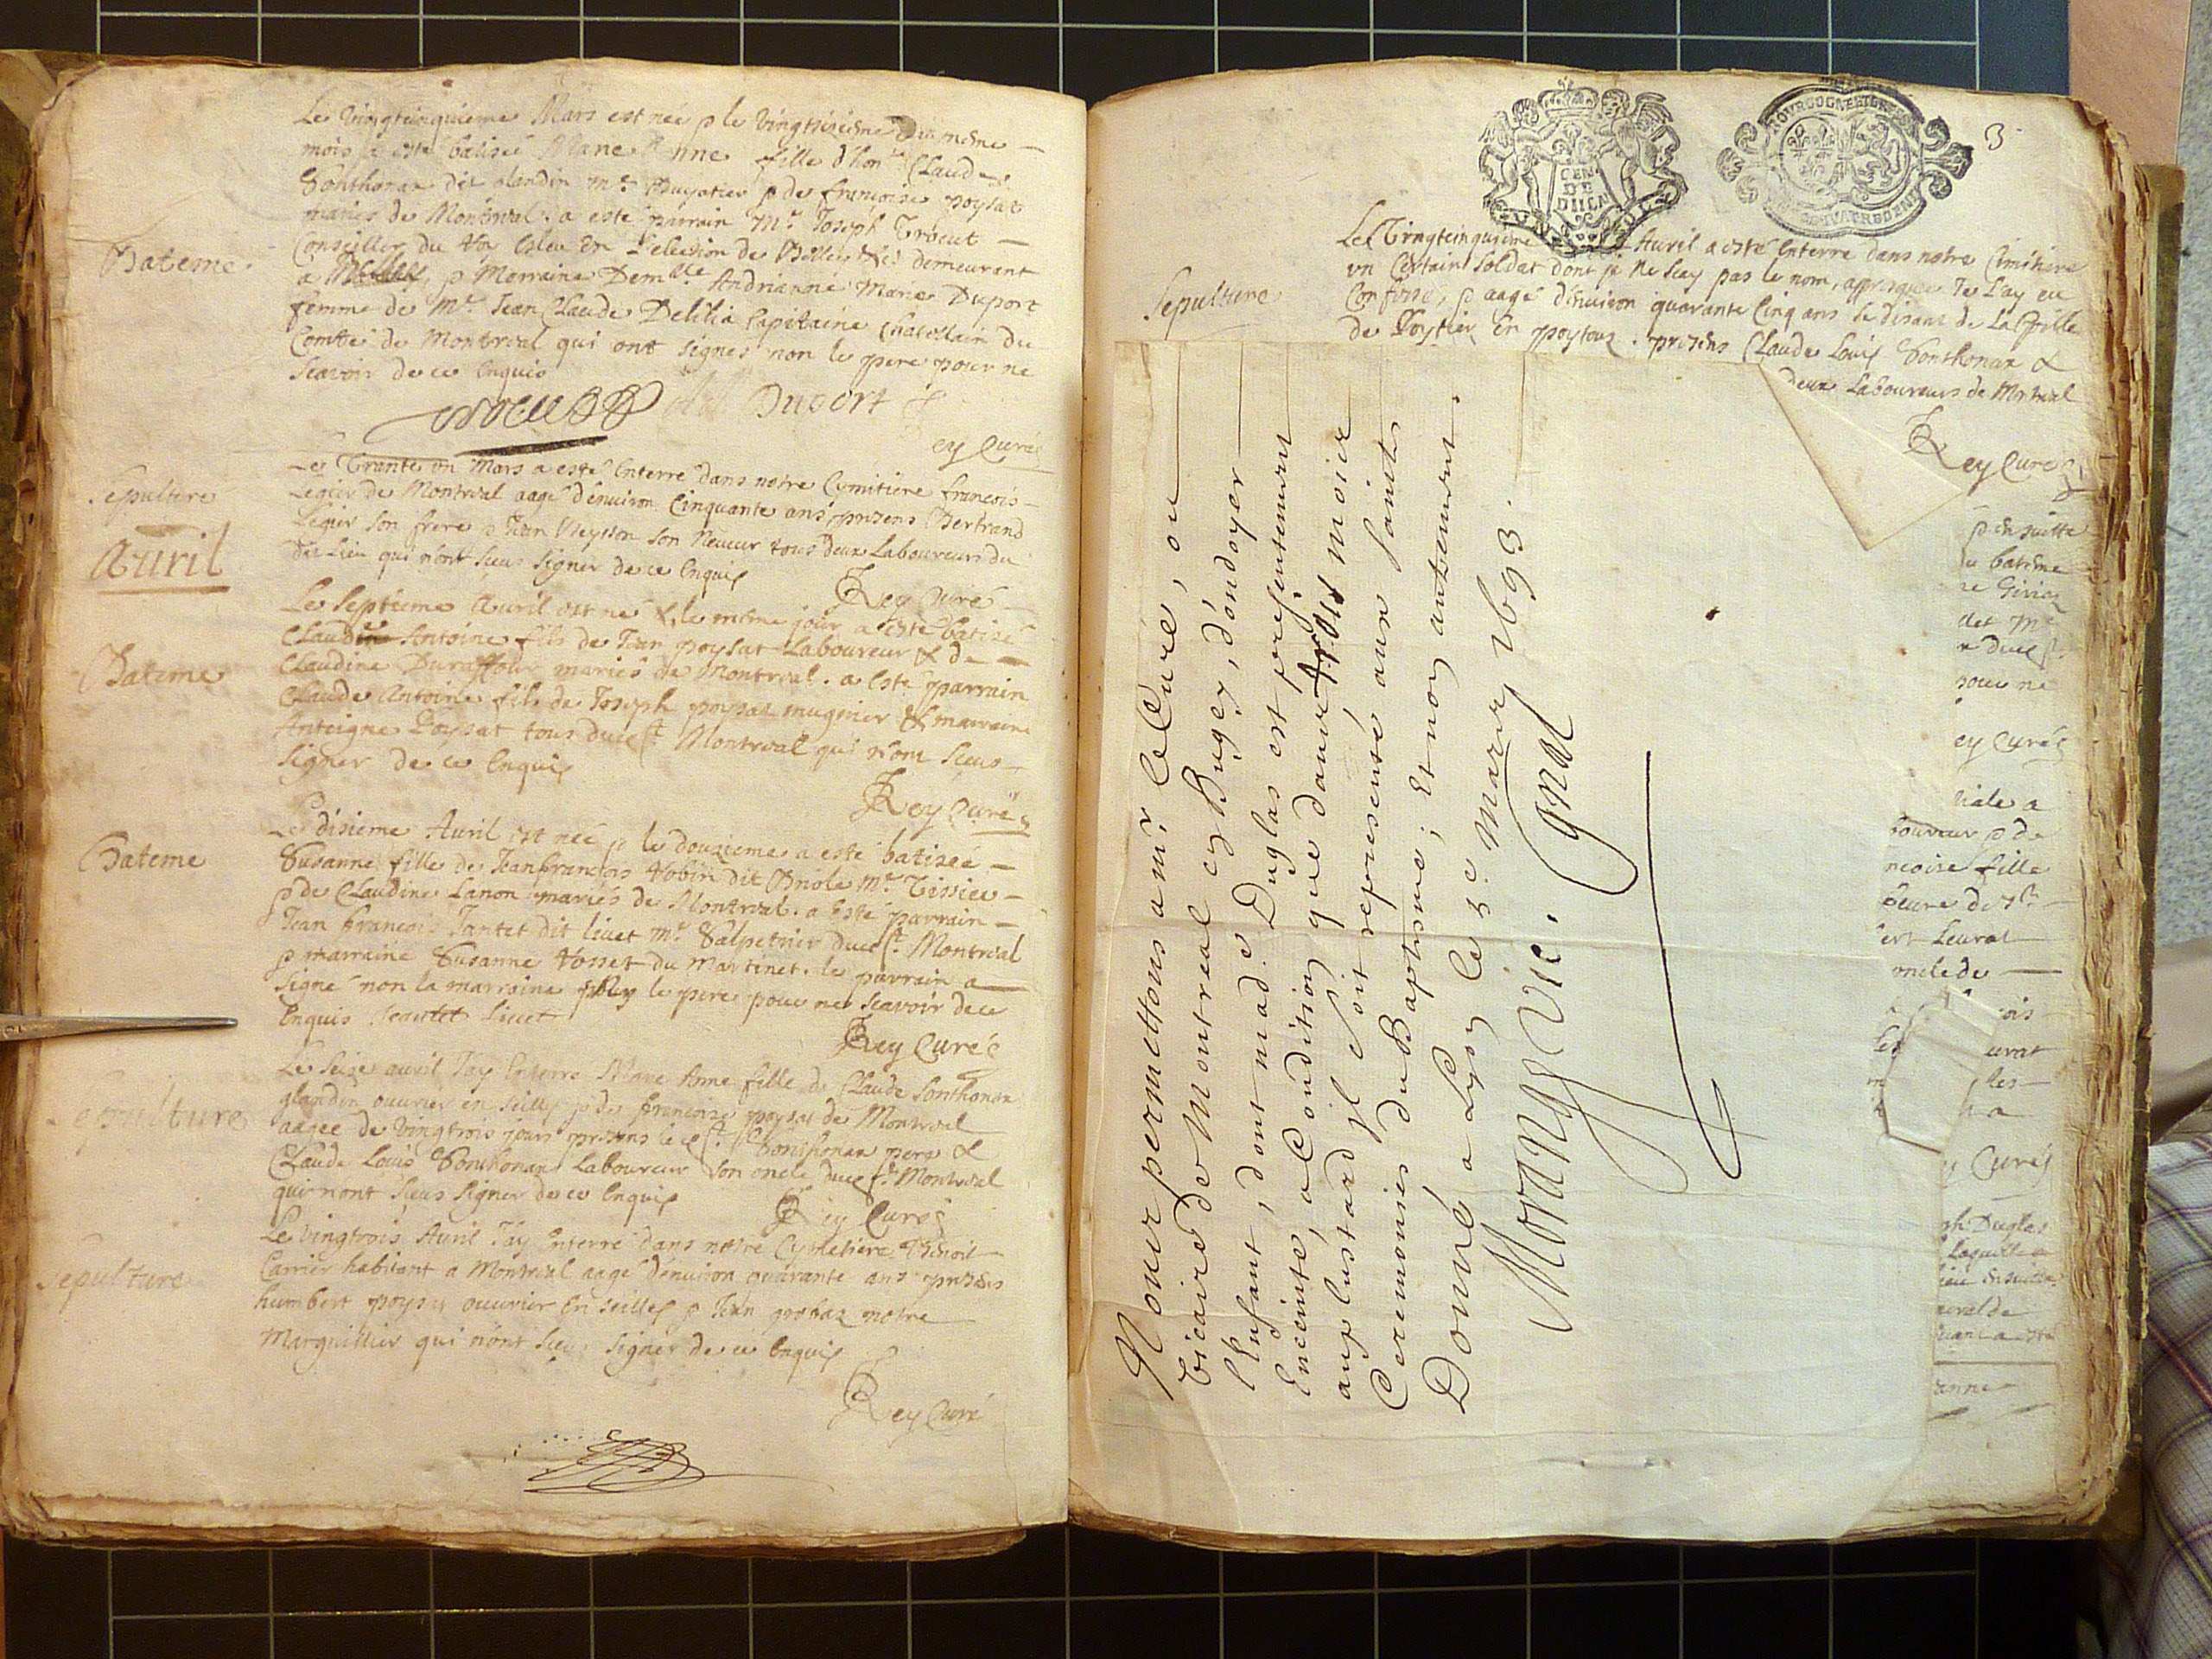 Le vingtcinquieme Mars est née p le vingtsixiesme du mesme
mois a esté batisée Marie Anne fille d'hon. Claude
Sonthonax dit glandin
mariés de Montreal. a esté parrain Mr. Joseph Trocut
Conseiller du Roy Esleu En L'election de Belley & demeurant
a p Marraine Demlle Andrianne Marie Duport
femme de Mr. Jean Claude Delilia Capitaine Chatellain du
Comté de Montreal qui ont signes non le pere pour ne
scavoir de ce Enquis
Bateme
Duport
ey Curé
Le Trante un Mars a esté Enterré dans notre Cymitiere francois
Legier de Montreal aagé d'enuiron Cinquante ans presens Bertrand
Legier Son frere p Jean Neysson Son Neueur tous deux Laboureurs du
dit Lieu qui n'ont sceus signer de ce Enquis
Rey Curé
Sepulture
Auril
Le Septieme Auril est né & le mesme jour a esté batisé
Claude Antoine fils de Jean poysat Laboureur & de
Claudine Duraffour mariés de Montreal. a esté parrain
Claude Antoine fils de Joseph poysat mugnier & marraine
Anteigne Poysat tous duct Montreal qui n'ont sceus
signer de ce Enquis
Rey Curé
Bateme
Le disieme Auril est née p le douzieme a esté batisée
Susanne fille de Jeanfrançois Robin dit Briole Mr. Tissier
p de Claudine Lanon mariés de Montreal. a esté parrain
Jean francois Jantet dit liuet Mr. Salpetrier duct Montreal
p marraine Susanne Rosset du Martinet. le parrain a
signé non la marraine ny le pere pour ne scavoir de ce
Enquis Jeantet Liuet
Rey Curé
Bateme
Le Seize auril J'ay Enterré Marie Anne fille de Claude Sonthonax
glandin ouurier en seilles p de francoise poysat de Montreal
aagée de vingtrois jours presens Sonthonax pere &
Claude Louis Sonthonax Laboureur Son oncle duct Montreal
qui n'ont sceus signer de ce Enquis
Rey Curé
Sepulture
Le vingtrois Auril J'ay Enterré dans notre Cymetiere Benoit
Carrier habitant a Montreal aagé d'enuiron quarante ans presens
humbert poysat ouurier En seilles p Jean grobaz notre
Marguillier qui n'ont sceus signer de ce Enquis
Rey Curé
Sepulture
3
GEN
DE
DIION
Le Vingtcinquieme Auril a esté Enterré dans notre Cimitiere
vn Certain Soldat dont je ne Scay pas le nom, appresque Je L'ay eu
Confessé, p aagé d'enuiron quarante Cinq ans se disant de La Ville
de Poytier En poytouz. presens Claude Louis Sonthonax &
deux Laboureurs de Montreal
Rey Curé
Sepulture
Nous permettons a mr le Curé, ou
vicaire de Montreal en Bugey, d'ondoyer
l'Enfant, dont made Duglas est presentement
Enceinte, a Condition que dans trois mois
au plus tard jl soit representé aux saintes
Ceremonies du Baptesme; Et non autrement.
Donné a Lyon le 3e mars 1693.
Morange Vic. gnal
p en suitte
u bateme
pour ne
ey Curé
tiale a
boureur p de
ncoise fille
ert Leurat
oncle de
ois
urat
les
y Curé
ph Duglas
neral de